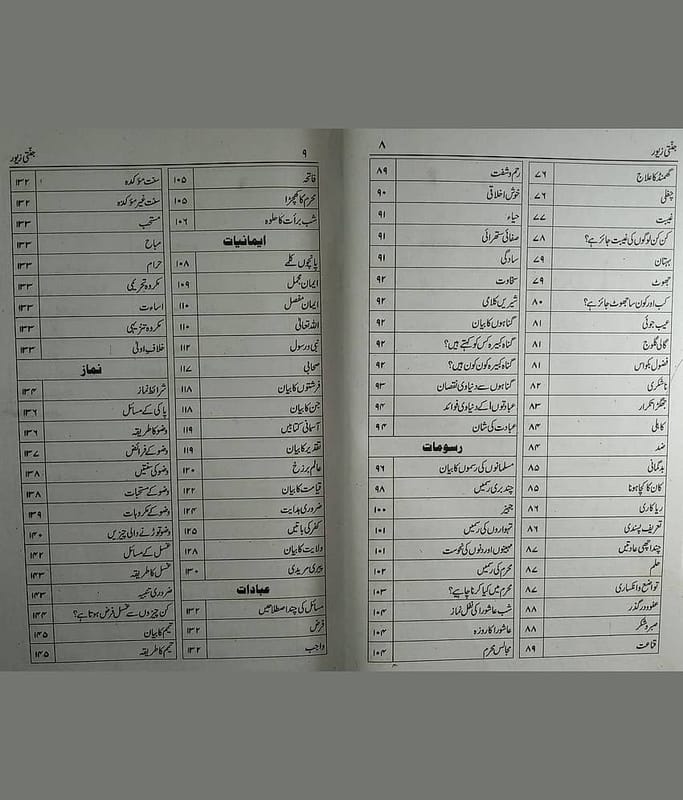 ۸ جنّتی زیور
گھمنڈ کا علاج ۷۶
چغلی ۷۶
غیبت ۷۷
کن کن لوگوں کی غیبت جائز ہے؟ ۷۸
بہتان ۷۹
جھوٹ ۷۹
کب اور کون سا جھوٹ جائز ہے؟ ۸۰
عیب جوئی ۸۱
گالی گلوج ۸۱
فضول بکواس ۸۱
ناشکری ۸۲
جھگڑا تکرار ۸۳
کاہلی ۸۴
ضد ۸۴
بدگمانی ۸۵
کان کا کچا ہونا ۸۵
ریاکاری ۸۶
تعریف پسندی ۸۶
چند اچھی عادتیں ۸۷
حلم ۸۷
تواضع و انکساری ۸۷
عفو و درگذر ۸۸
صبر و شکر ۸۸
قناعت ۸۹
رحم و شفقت ۸۹
خوش اخلاقی ۹۰
حیاء ۹۱
صفائی ستھرائی ۹۱
سادگی ۹۱
سخاوت ۹۲
شیریں کلامی ۹۲
گناہوں کا بیان ۹۲
گناہ کبیرہ کس کو کہتے ہیں؟ ۹۲
گناہ کبیرہ کون کون ہیں؟ ۹۲
گناہوں سے دنیاوی نقصان ۹۳
عبادتوں کے دنیاوی فوائد ۹۴
عبادت کی شان ۹۴
رسومات
مسلمانوں کی رسموں کا بیان ۹۶
چند بری رسمیں ۹۸
جہیز ۱۰۰
تہواروں کی رسمیں ۱۰۱
مہینوں اور دنوں کی نحوست ۱۰۱
محرم کی رسمیں ۱۰۲
محرم میں کیا کرنا چاہیے؟ ۱۰۳
شب عاشورا کی نفل نماز ۱۰۴
عاشورا کا روزہ ۱۰۴
مجالس محرم ۱۰۴
۹ جنّتی زیور
فاتحہ ۱۰۵
محرم کا کھچڑا ۱۰۵
شب برأت کا حلوہ ۱۰۶
ایمانیات
پانچوں کلمے ۱۰۸
ایمان مجمل ۱۰۹
ایمان مفصل ۱۱۰
اللہ تعالیٰ ۱۱۰
نبی و رسول ۱۱۲
صحابی ۱۱۷
فرشتوں کا بیان ۱۱۸
جن کا بیان ۱۱۸
آسمانی کتابیں ۱۱۹
تقدیر کا بیان ۱۱۹
عالم برزخ ۱۲۰
قیامت کا بیان ۱۲۲
ضروری ہدایت ۱۲۴
کفر کی باتیں ۱۲۵
ولایت کا بیان ۱۲۸
پیری مریدی ۱۳۰
عبادات
مسائل کی چند اصطلاحیں ۱۳۲
فرض ۱۳۲
واجب ۱۳۲
سنت مؤکدہ ۱۳۲
سنت غیر مؤکدہ ۱۳۲
مستحب ۱۳۳
مباح ۱۳۳
حرام ۱۳۳
مکروہ تحریمی ۱۳۳
اساءت ۱۳۳
مکروہ تنزیہی ۱۳۳
خلاف اولیٰ ۱۳۳
نماز
شرائط نماز ۱۳۴
پاکی کے مسائل ۱۳۶
وضو کا طریقہ ۱۳۶
وضو کے فرائض ۱۳۷
وضو کی سنتیں ۱۳۸
وضو کے مستحبات ۱۳۸
وضو کے مکروہات ۱۳۹
وضو توڑنے والی چیزیں ۱۴۰
غسل کے مسائل ۱۴۲
غسل کا طریقہ ۱۴۳
ضروری تنبیہ ۱۴۳
کن چیزوں سے غسل فرض ہوتا ہے؟ ۱۴۴
تیمم کا بیان ۱۴۵
تیمم کا طریقہ ۱۴۵